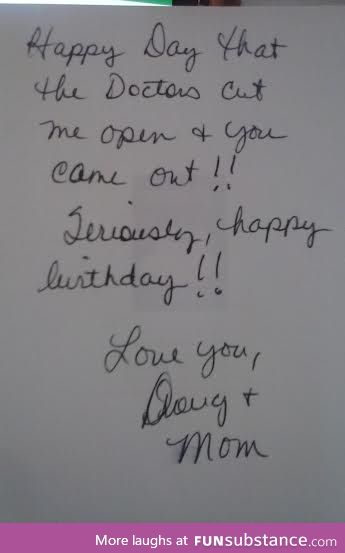 Happy Day that
the Doctors cut
me open + you
came out!!
Seriously, happy
birthday!!
Love you,
Doug +
Mom
More laughs at FUNsubstance.com